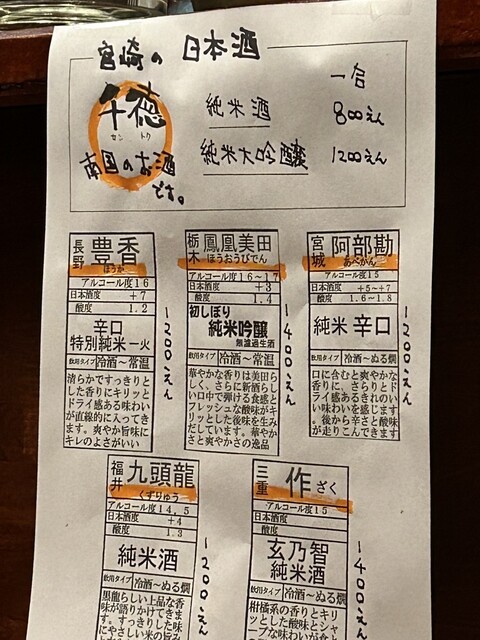 宮崎の日本酒
千徳
セントク
南国のお酒です。
一合
純米酒 800えん
純米大吟醸 1200えん
長野 豊香
ほうか
アルコール度16
日本酒度 +7
酸度 1.2
辛口
特別純米一火
飲用タイプ 冷酒～常温
清らかですっきりと
した香りにキリッと
ドライ感ある味わい
が直線的に入ってき
ます。爽やか旨味に
キレのよさがいい
1200えん
栃木 鳳凰美田
ほうおうびでん
アルコール度16～17
日本酒度 +3
酸度 1.4
初しぼり
純米吟醸
無濾過生酒
飲用タイプ 冷酒～常温
華やかな香りは美田ら
しく、さらに新酒らし
い口中で弾ける食感と
フレッシュな酸味がキ
リッとした後味を生み
だしています。華やか
さと爽やかさの逸品
1400えん
宮城 阿部勘
あべかん
アルコール度15
日本酒度 +5～+7
酸度 1.6～1.8
純米 辛口
飲用タイプ 冷酒～ぬる燗
口に含むと爽やかな
香りに、さらりとド
ライ感あるきれの
い味わいを感じます
。後から辛さと酸味
が走りこんできます
1200えん
福井 九頭龍
くずりゅう
アルコール度14.5
日本酒度 +4
酸度 1.3
純米酒
飲用タイプ 冷酒～ぬる燗
黒龍らしい上品な香
味が語りかけてきま
す。すっきりした味
にやさしい米の旨み
1200えん
三重 作 ざく
アルコール度15
日本酒度
酸度
玄乃智
純米酒
飲用タイプ 冷酒～ぬる燗
柑橘系の香りとキリ
ッとした酸味とシャ
ープな味わいが食
1400えん